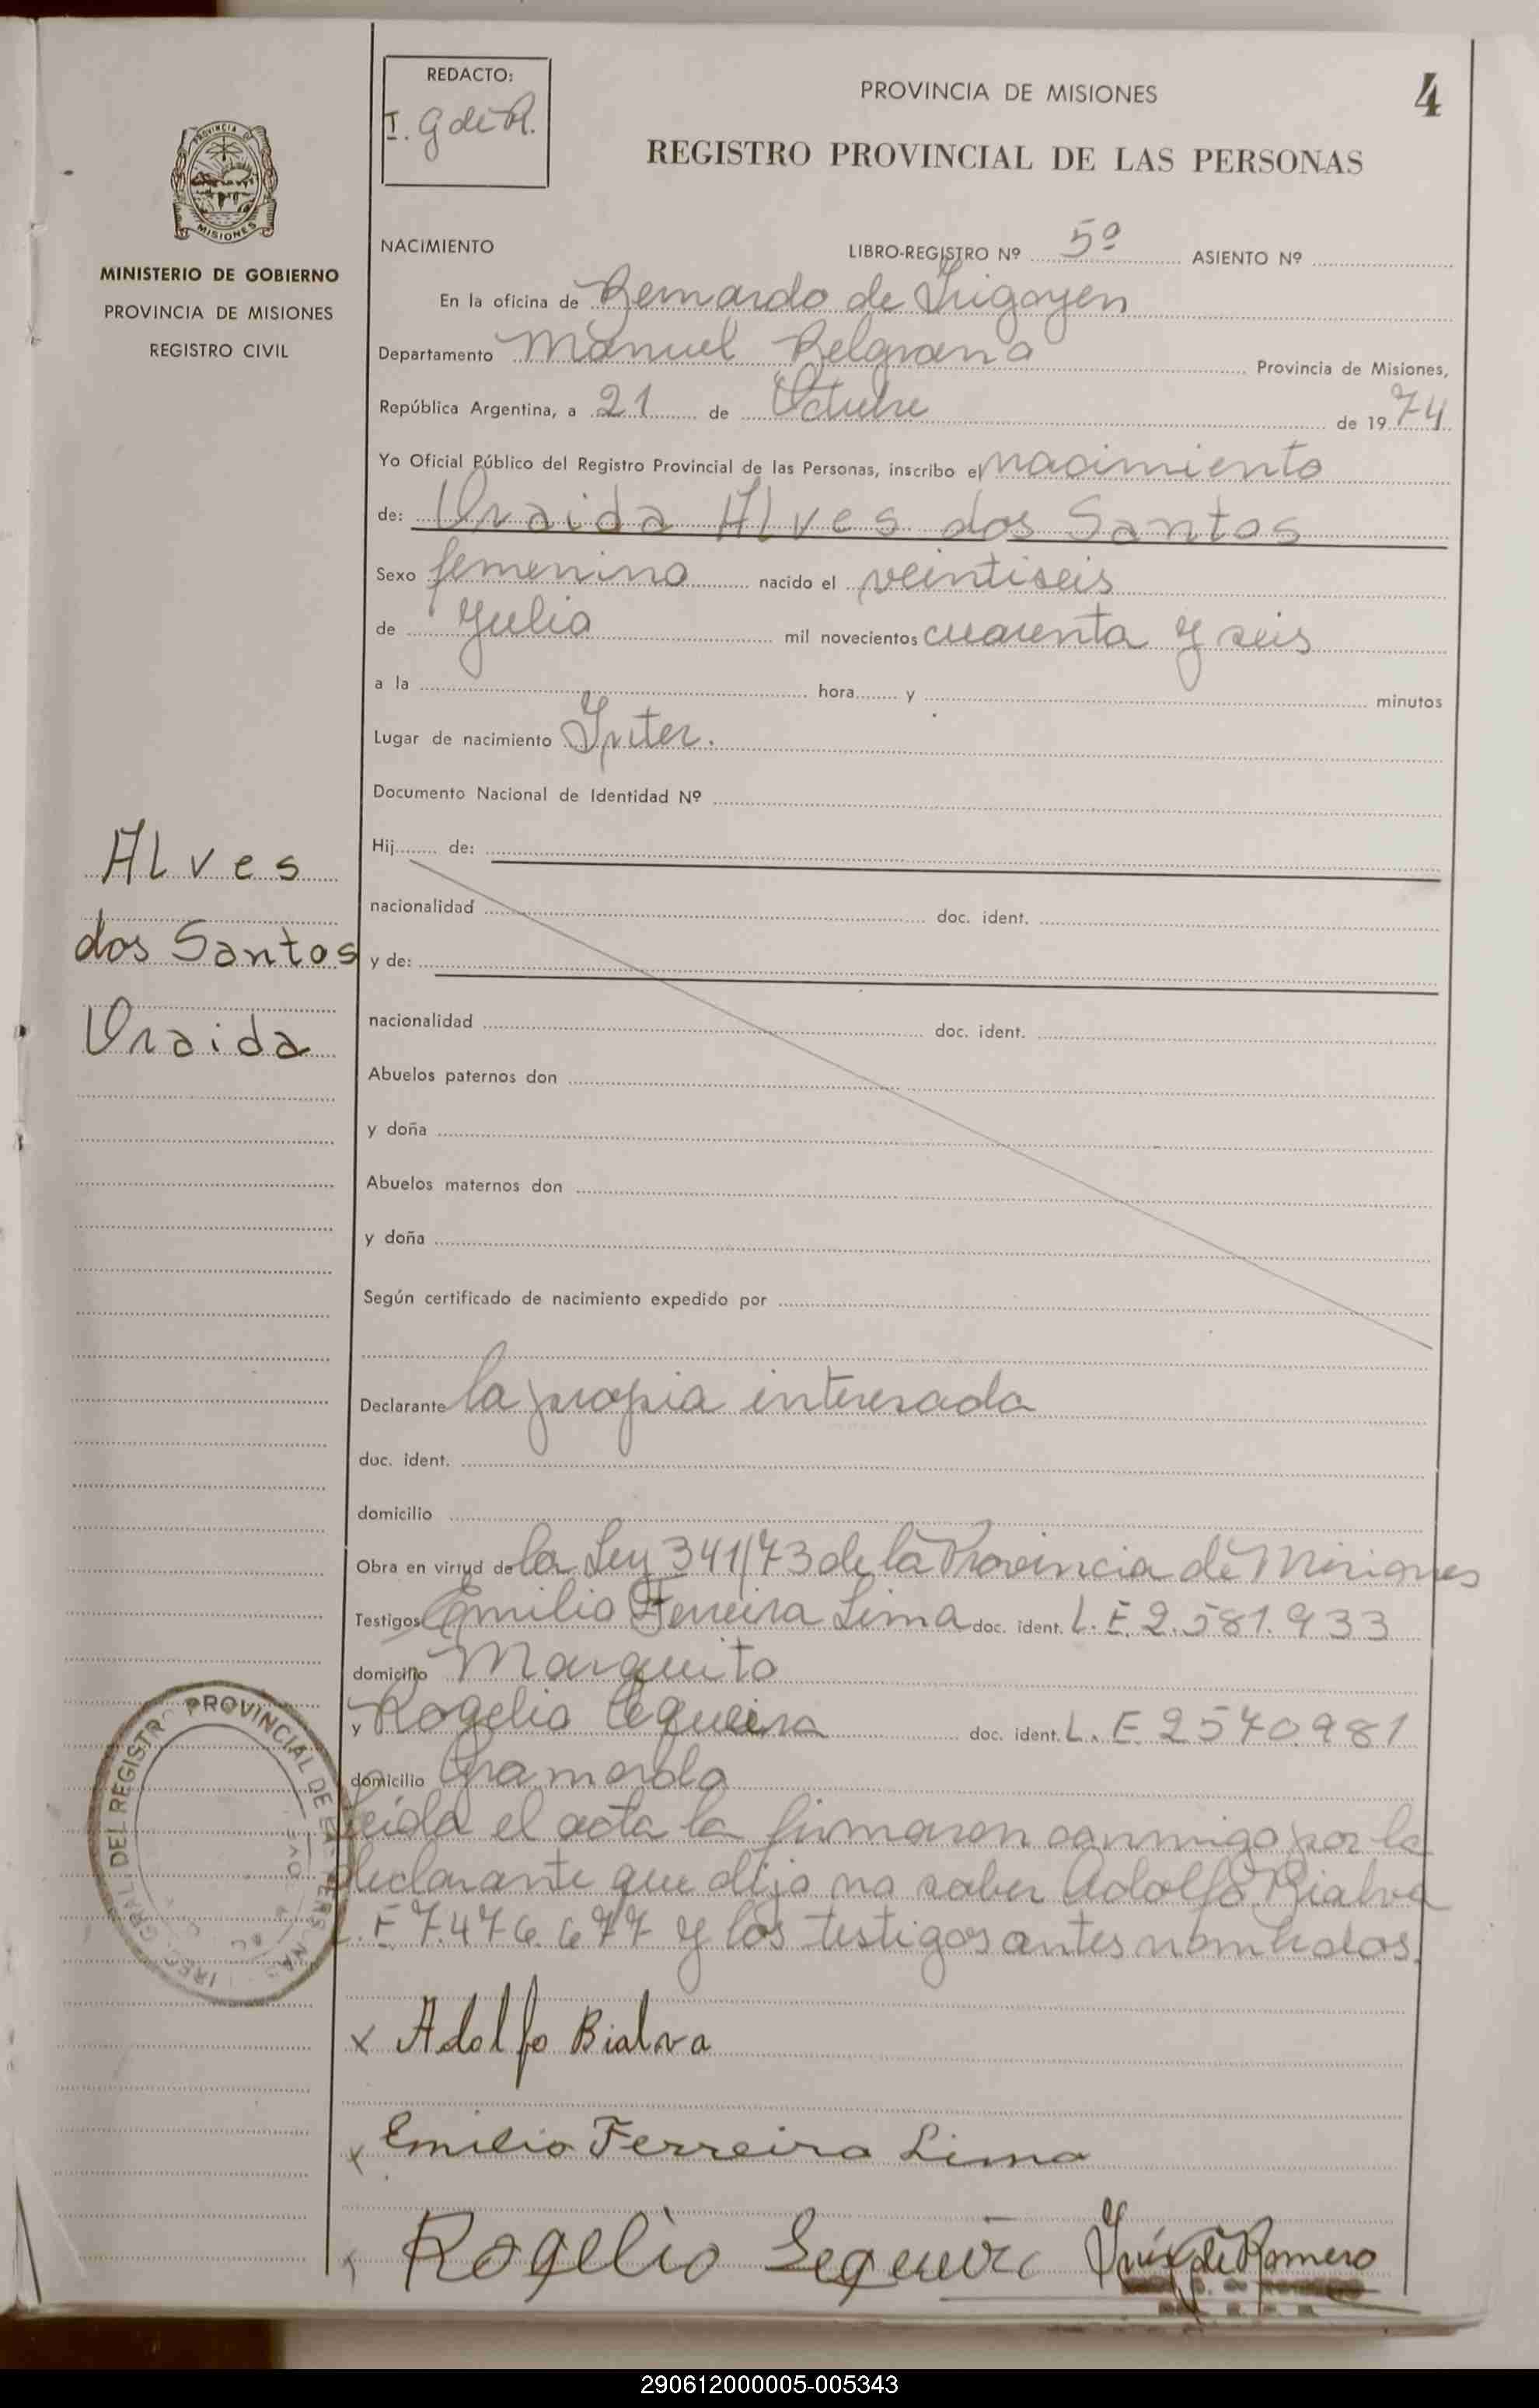 REDACTO:
I. G de R.
PROVINCIA DE MISIONES
4
REGISTRO PROVINCIAL DE LAS PERSONAS
MISIONES
MINISTERIO DE GOBIERNO
PROVINCIA DE MISIONES
REGISTRO CIVIL
NACIMIENTO LIBRO-REGISTRO Nº 5º ASIENTO Nº
En la oficina de Bernardo de Irigoyen
Departamento Manuel Belgrano Provincia de Misiones,
República Argentina, a 21 de Octubre de 1974
Yo Oficial Público del Registro Provincial de las Personas, inscribo el nacimiento
de: Oraida Alves dos Santos
Sexo femenino nacido el veintiseis
de Julio mil novecientos cuarenta y seis
a la hora y minutos
Lugar de nacimiento Inter.
Documento Nacional de Identidad Nº
Hij de:
nacionalidad doc. ident.
y de:
nacionalidad doc. ident.
Abuelos paternos don
y doña
Abuelos maternos don
y doña
Según certificado de nacimiento expedido por
Alves
dos Santos
Oraida
Declarante la propia interesada
doc. ident.
domicilio
Obra en virtud de la Ley 341/73 de la Provincia de Misiones
Testigos Emilio Ferreira Lima doc. ident. L.E. 2.581.933
domicilio
y Rogelio doc. ident. L.E. 2570.981
domicilio
leída el acta la firmaron conmigo por la
declarante que dijo no saber Adolfo Bialva
L.E 7.476.677 y los testigos antes nombrados.
x Adolfo Bialva
x Emilio Ferreira Lima
x Rogelio Sequeira
Inés de Romero
290612000005-005343